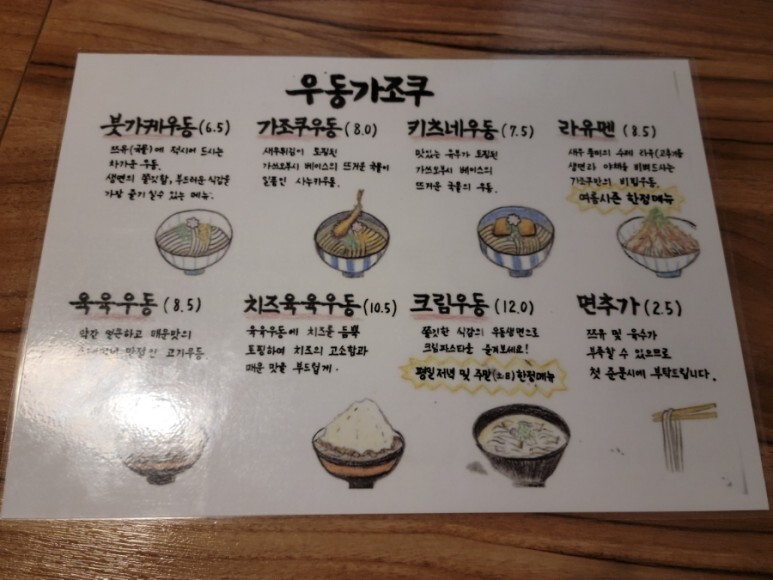 우동가조쿠
붓가케우동 (6.5)
쯔유(국물)에 적시어 드시는
차가운 우동.
생면의 쫄깃함, 부드러운 식감을
가장 즐기실수 있는 메뉴.
가조쿠우동 (8.0)
새우튀김이 토핑된
가쓰오부시 베이스의 뜨거운 국물이
일품인 사누키우동.
키츠네우동 (7.5)
맛있는 유부가 토핑된
가쓰오부시 베이스의
뜨거운 국물의 우동.
라유멘 (8.5)
새우 풍미의 수제 라유(고추기름)
생면과 야채를 비벼드시는
가조쿠만의 비빔우동.
여름시즌 한정메뉴
육육우동 (8.5)
약간 얼큰하고 매운맛의
고기우동
치즈육육우동 (10.5)
육육우동에 치즈를 듬뿍
토핑하여 치즈의 고소함과
매운 맛을 부드럽게.
크림우동 (12.0)
쫄깃한 식감의 우동생면으로
크림파스타를 즐겨보세요!
평일저녁 및 주말(토,일)한정메뉴
면추가 (2.5)
쯔유 및 육수가
부족할 수 있으므로
첫 주문시에 부탁드립니다.